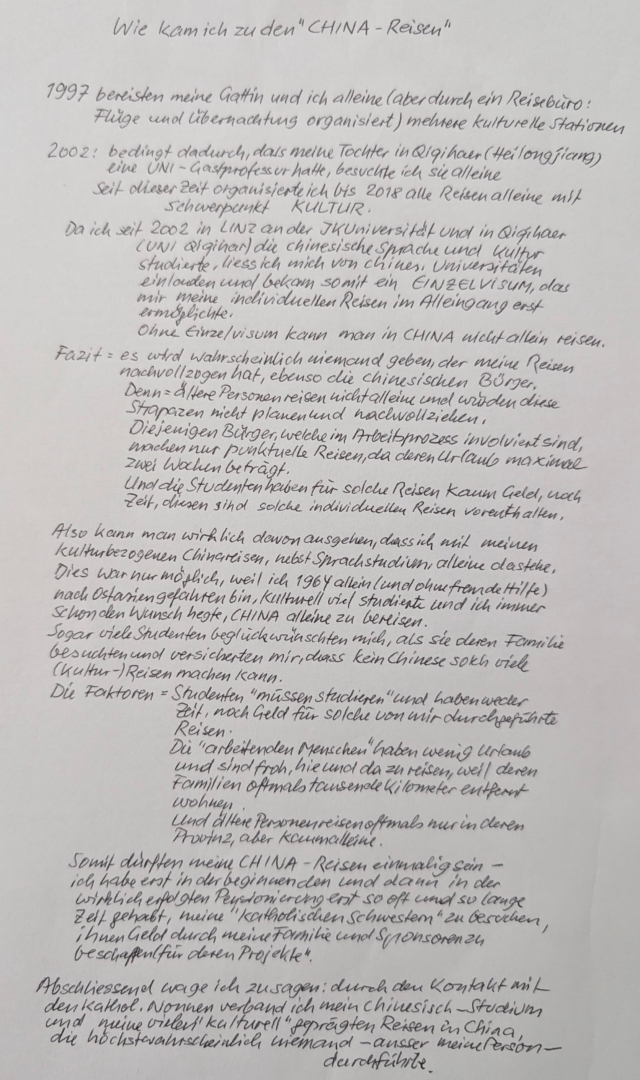 Wie kam ich zu den "CHINA - Reisen"
1997 bereisten meine Gattin und ich alleine (aber durch ein Reisebüro:
Flüge und Übernachtung organisiert) mehrere kulturelle Stationen
2002: bedingt dadurch, dass meine Tochter in Qiqihaer (Heilongjiang)
eine UNI - Gastprofessur hatte, besuchte ich sie alleine
Seit dieser Zeit organisierte ich bis 2018 alle Reisen alleine mit
Schwerpunkt KULTUR.
Da ich seit 2002 in LINZ an der JKUniversität und in Qiqihaer
(UNI Qiqihar) die chinesische Sprache und Kultur
studierte, liess ich mich von chines. Universitäten
einladen und bekam somit ein EINZELVISUM, das
mir meine individuellen Reisen im Alleingang erst
ermöglichte.
Ohne Einzelvisum kann man in CHINA nicht allein reisen.
Fazit = es wird wahrscheinlich niemand geben, der meine Reisen
nachvollzogen hat, ebenso die chinesischen Bürger.
Denn = ältere Personen reisen nicht alleine und würden diese
Strapazen nicht planen und nachvollziehen.
Diejenigen Bürger, welche im Arbeitsprozess involviert sind,
machen nur punktuelle Reisen, da deren Urlaub maximal
zwei Wochen beträgt.
Und die Studenten haben für solche Reisen kaum Geld, noch
Zeit, diesen sind solche individuellen Reisen vorenthalten.
Also kann man wirklich davon ausgehen, dass ich mit meinen
kulturbezogenen Chinareisen, nebst Sprachstudium, alleine dastehe.
Dies war nur möglich, weil ich 1964 allein (und ohne fremde Hilfe)
nach Ostasien gefahren bin, kulturell viel studierte und ich immer
schon den Wunsch hegte, CHINA alleine zu bereisen.
Sogar viele Studenten beglückwünschten mich, als sie deren Familie
besuchten und versicherten mir, dass kein Chinese solch viele
(Kultur-) Reisen machen kann.
Die Faktoren = Studenten "müssen studieren" und haben weder
Zeit, noch Geld für solche von mir durchgeführte
Reisen.
Die "arbeitenden Menschen" haben wenig Urlaub
und sind froh, hie und da zu reisen, weil deren
Familien oftmals tausende Kilometer entfernt
wohnen.
Und ältere Personen reisen oftmals nur in deren
Provinz, aber kaum alleine.
Somit dürften meine CHINA - Reisen einmalig sein -
ich habe erst in der beginnenden und dann in der
wirklich erfolgten Pensionierung erst so oft und so lange
Zeit gehabt, meine "katholischen Schwestern" zu besuchen,
ihnen Geld durch meine Familie und Sponsoren zu
beschaffen (für deren Projekte".
Abschliessend wage ich zu sagen: durch den Kontakt mit
den kathol. Nonnen verband ich mein Chinesisch - Studium
und meine vielen "kulturell" geprägten Reisen in China,
die höchstwahrscheinlich niemand - ausser meine Person -
durchführte.